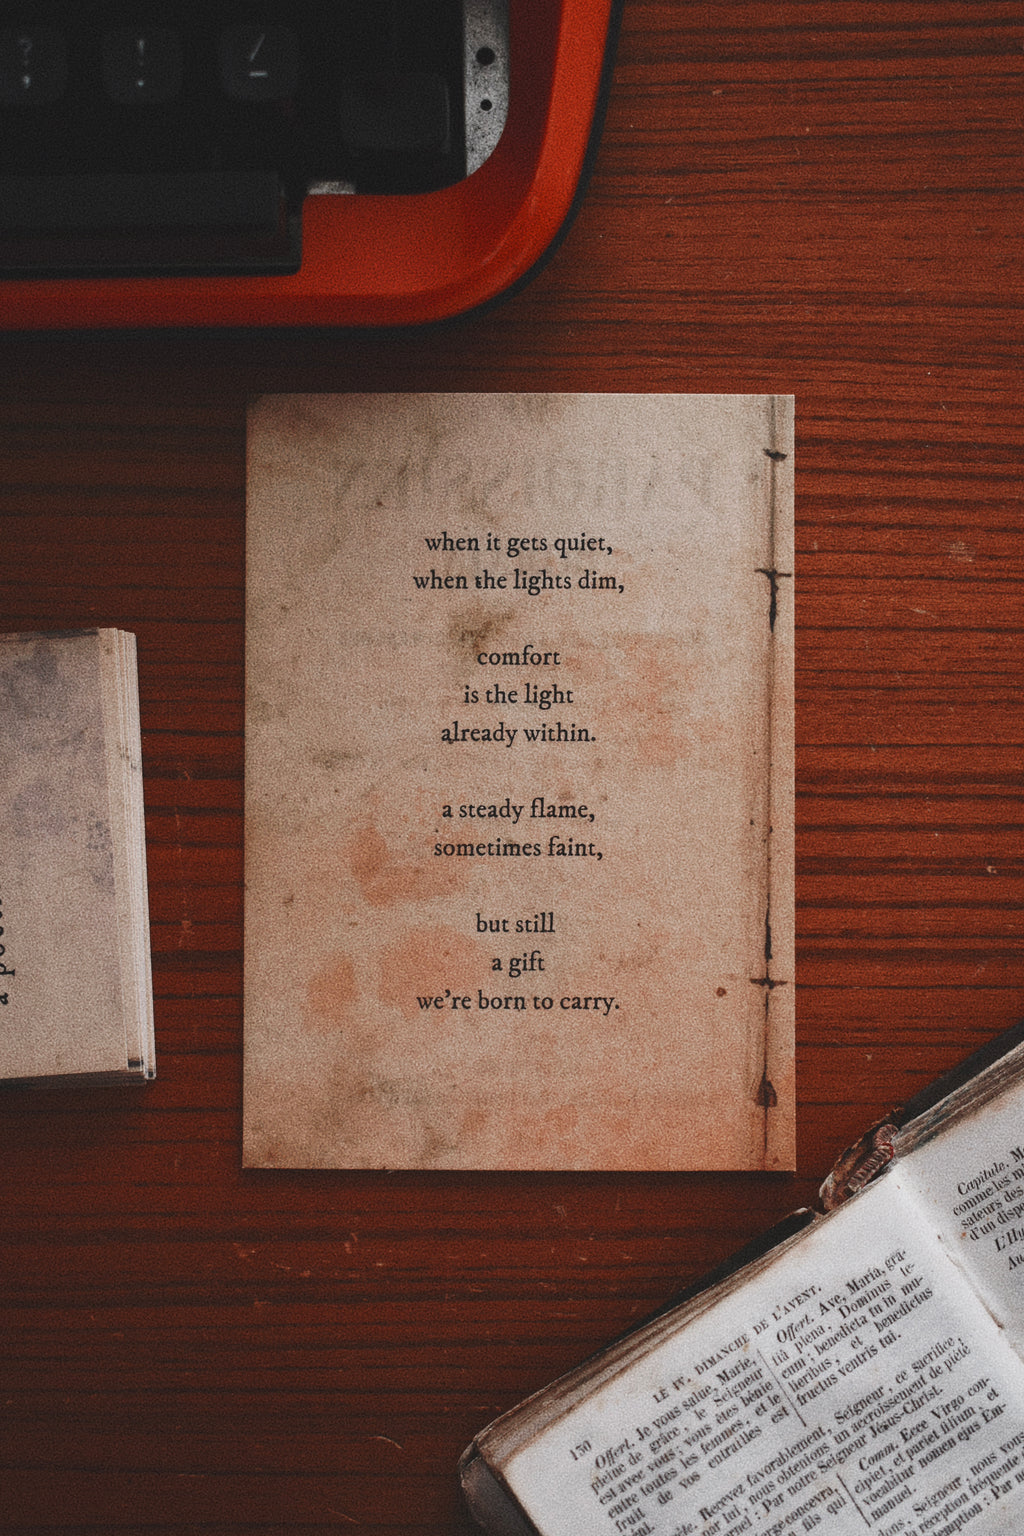 ? ! /
; . _
when it gets quiet,
when the lights dim,
comfort
is the light
already within.
a steady flame,
sometimes faint,
but still
a gift
we're born to carry.
a
130
LE IV. DIMANCHE DE L'AVENT.
Offert. Je vous salue, Marie,
pleine de grâce, le Seigneur
est avec vous; vous êtes bénie
entre toutes les femmes, et le
fruit de vos entrailles est
ni.
Offert. Ave, Maria, grâ-
tiâ plena, Dominus te-
cum; benedicta tu in mu-
lieribus, et benedictus
fructus ventris tui.
Recevez favorablement, Seigneur, ce sacrifice;
par lui, nous obtenions un accroissement de piété
: Par notre Seigneur Jésus-Christ.
fils qui
Comm. Ecce Virgo con-
cipiet, et pariet filium, et
vocabitur nomen ejus Em-
manuel.
Seigneur, nous vous
réception fréquente
: Par
Capitule.
comme les
sateurs des
d'un